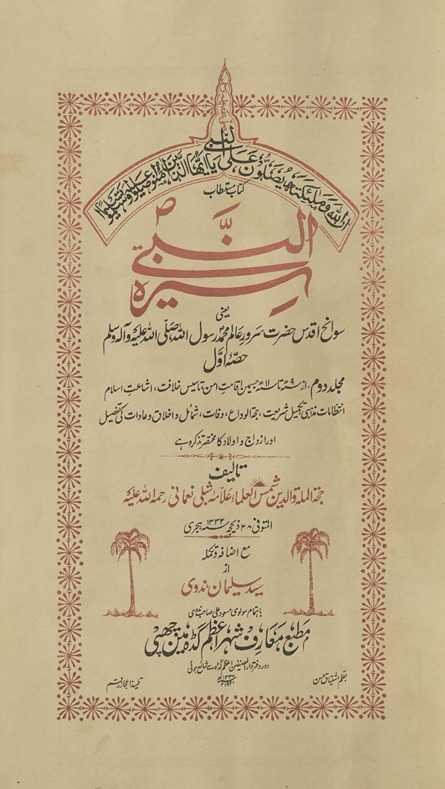 ان الله وملئكته يصلون على النبي يايها الذين امنوا صلوا عليه وسلموا تسليما
کتاب مستطاب
سیرۃ النبیؐ
یعنی
سوانح اقدس حضرت سرور عالم محمد رسول اللہ صلی اللہ علیہ وآلہ وسلم
حصہ اول
مجلد دوم، از سنہ تا سنہ جسمیں اقامت امن تاسیس خلافت، اشاعت اسلام
انتظامات مذہبی تکمیل شریعت، حجۃ الوداع، وفات، شمائل و اخلاق و عادات کی تفصیل
اور ازواج و اولاد کا مختصر تذکرہ ہے
تالیف
حجۃ الملۃ والدین شمس العلماء علامہ شبلی نعمانی رحمۃ اللہ علیہ
المتوفی ۲۸ ذیحجہ ۱۳۳۲ ہجری
مع اضافہ و تکملہ
از
سید سلیمان ندوی
باہتمام مولوی مسعود علی صاحب ندوی
مطبع معارف شہر اعظم گڈہ مین چھپی
اور دفتر دار المصنفین اعظم گڈہ سے شائع ہوئی